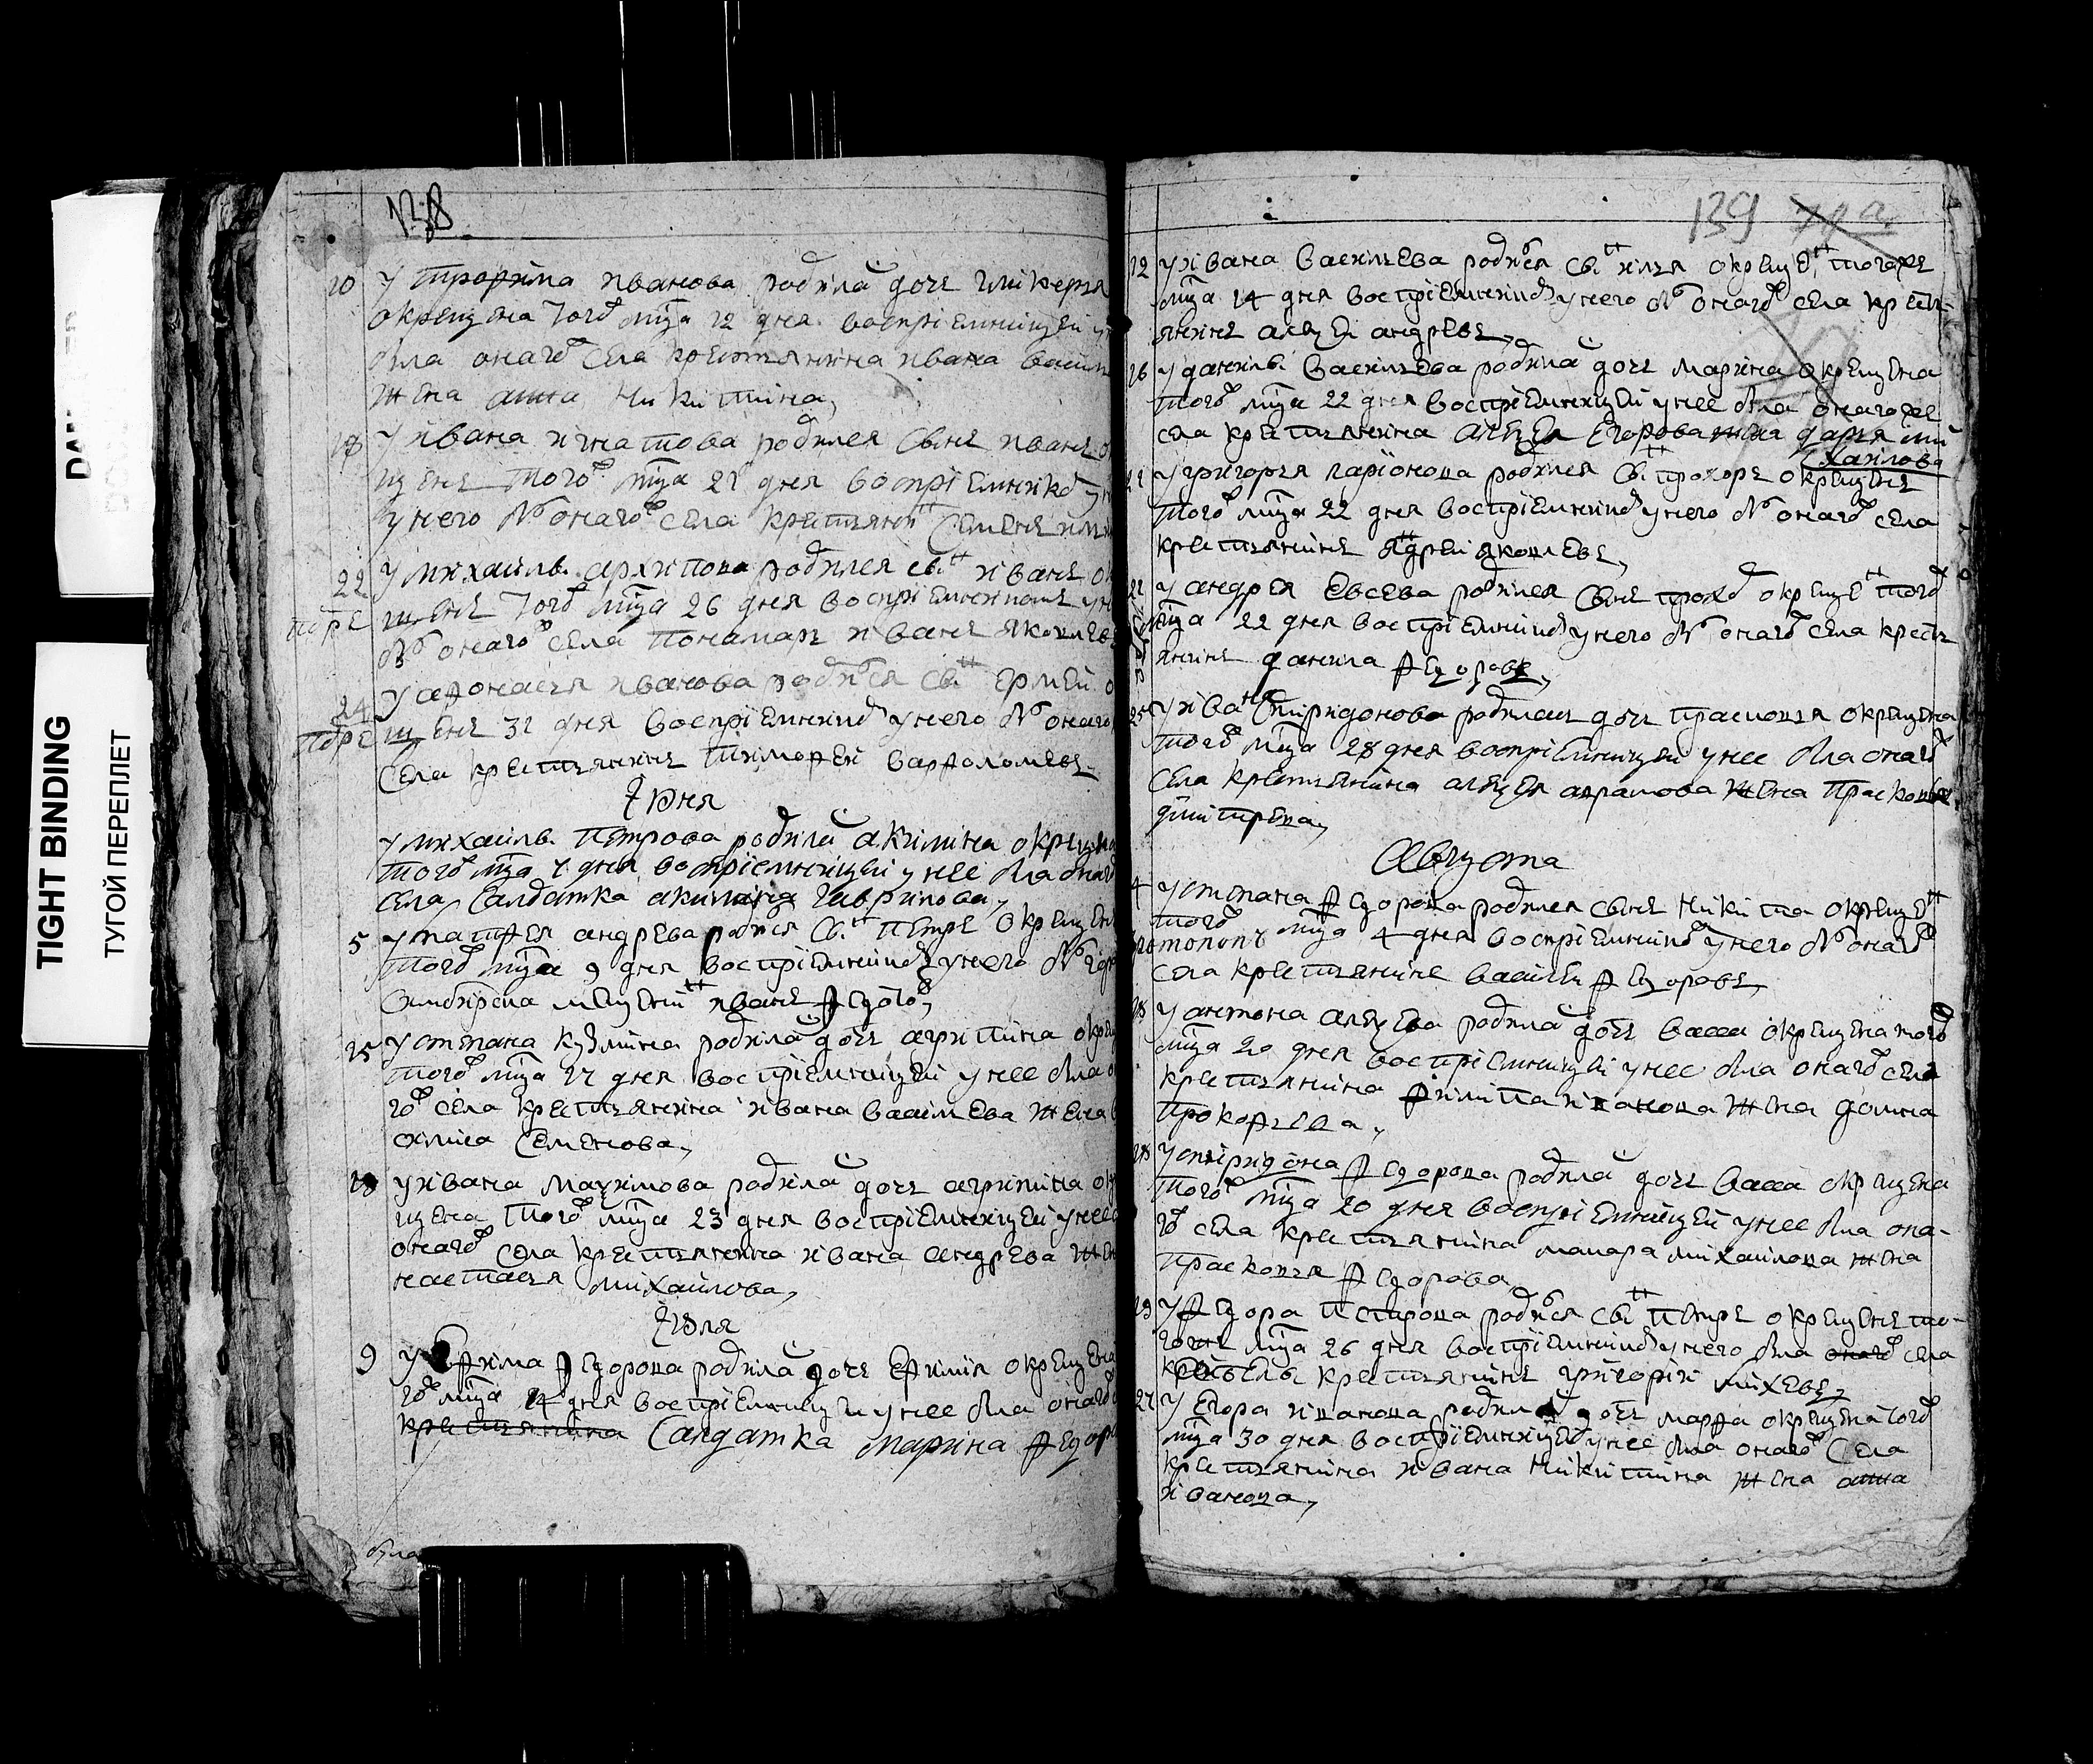 TIGHT BINDING
ТУГОЙ ПЕРЕПЛЕТ
138
10 У трофима иванова родила дочь гликерья
окрещена того мца 12 дня восприемницей у
была онаго села крестьянина ивана васил
жена анна никитина,
18 У ивана игнатова родился сынъ иванъ о
щенъ того мца 21 дня восприемнико у
у него былъ онаго села крестьянинъ семенъ
22 У михаилы архипова родился сынъ иванъ ок
щенъ того мца 26 дня восприемникомъ у н
былъ онаго села понамарь иванъ яковлевъ
24 У афонасья иванова родися сынъ ермей о
щенъ 31 дня восприемник у него былъ онаго
села крестьянинъ тимофей варфоломевъ
Июня
У михаилы петрова родила акилина окрещена
того мца 7 дня восприемницей у нее была онаго
села салдатка акилина гаврилова,
5 У матфея андрева родися сынъ петръ окрещенъ
того мца 9 дня восприемник у него былъ
синбирска иванъ
15 У степана кузмина родила дочь агрипина окре
того мца 17 дня восприемницей у нее была о
го села крестьянина ивана василева жена
семенова,
У ивана максимова родила дочь агрипина ок
щена того мца 23 дня восприемницей у нее
онаго села крестьянина ивана андрева жен
настасья михаилова,
Июля
9 У ефима федорова родила дочь ефимия окрещена
го мца 14 дня восприемницеи у нее была онаго
крестьянина салдатка марина федор
139
12 У ивана василева родися сынъ илья окрещенъ тогоже
мца 14 дня восприемник у него былъ онаго села кресть-
янинъ алексей андревъ,
16 У данилы василева родила дочь марина окрещена
того мца 22 дня восприемницей у нее была онагоже
села крестьянина алексея егорова жена дарья ми
хаилова
21 У григорья ларионова родился сынъ прохоръ окрещенъ
того мца 22 дня восприемник у него былъ онаго села
крестьянинъ андрей яковлевъ,
У андрея евсева родился сынъ прохо окрещенъ того
мца 22 дня восприемник у него былъ онаго села кресть
янинъ данила федоровъ,
25 У ивана спиридонова родилась дочь прасковья окрещена
того мца 28 дня восприемницей у нее была онаго
села крестьянина алексея аврамова жена прасковья
дмитрева,
Августа
4 У степана федорова родился сынъ никита окрещенъ
того мца 4 дня восприемник у него былъ онаго
села крестьянинъ василей федоровъ,
18 У антона алексева родила дочь васса окрещена того
мца 20 дня восприемницей у нее была онаго села
крестьянина филипа иванова жена домна
прокофьева,
18 У спиридона федорова родила дочь васса окрещена
того мца 20 дня восприемницей у нее была она-
го села крестьянина макара михаилова жена
прасковья федорова
19 У федора петрова родися сынъ петръ окрещенъ то-
гожъ мца 26 дня восприемник у него была онаго села
крестьянинъ григорий михевъ,
27 У егора иванова родила дочь марфа окрещена того
мца 30 дня восприемницей у нее была онаго села
крестьянина ивана никитина жена анна
иванова,